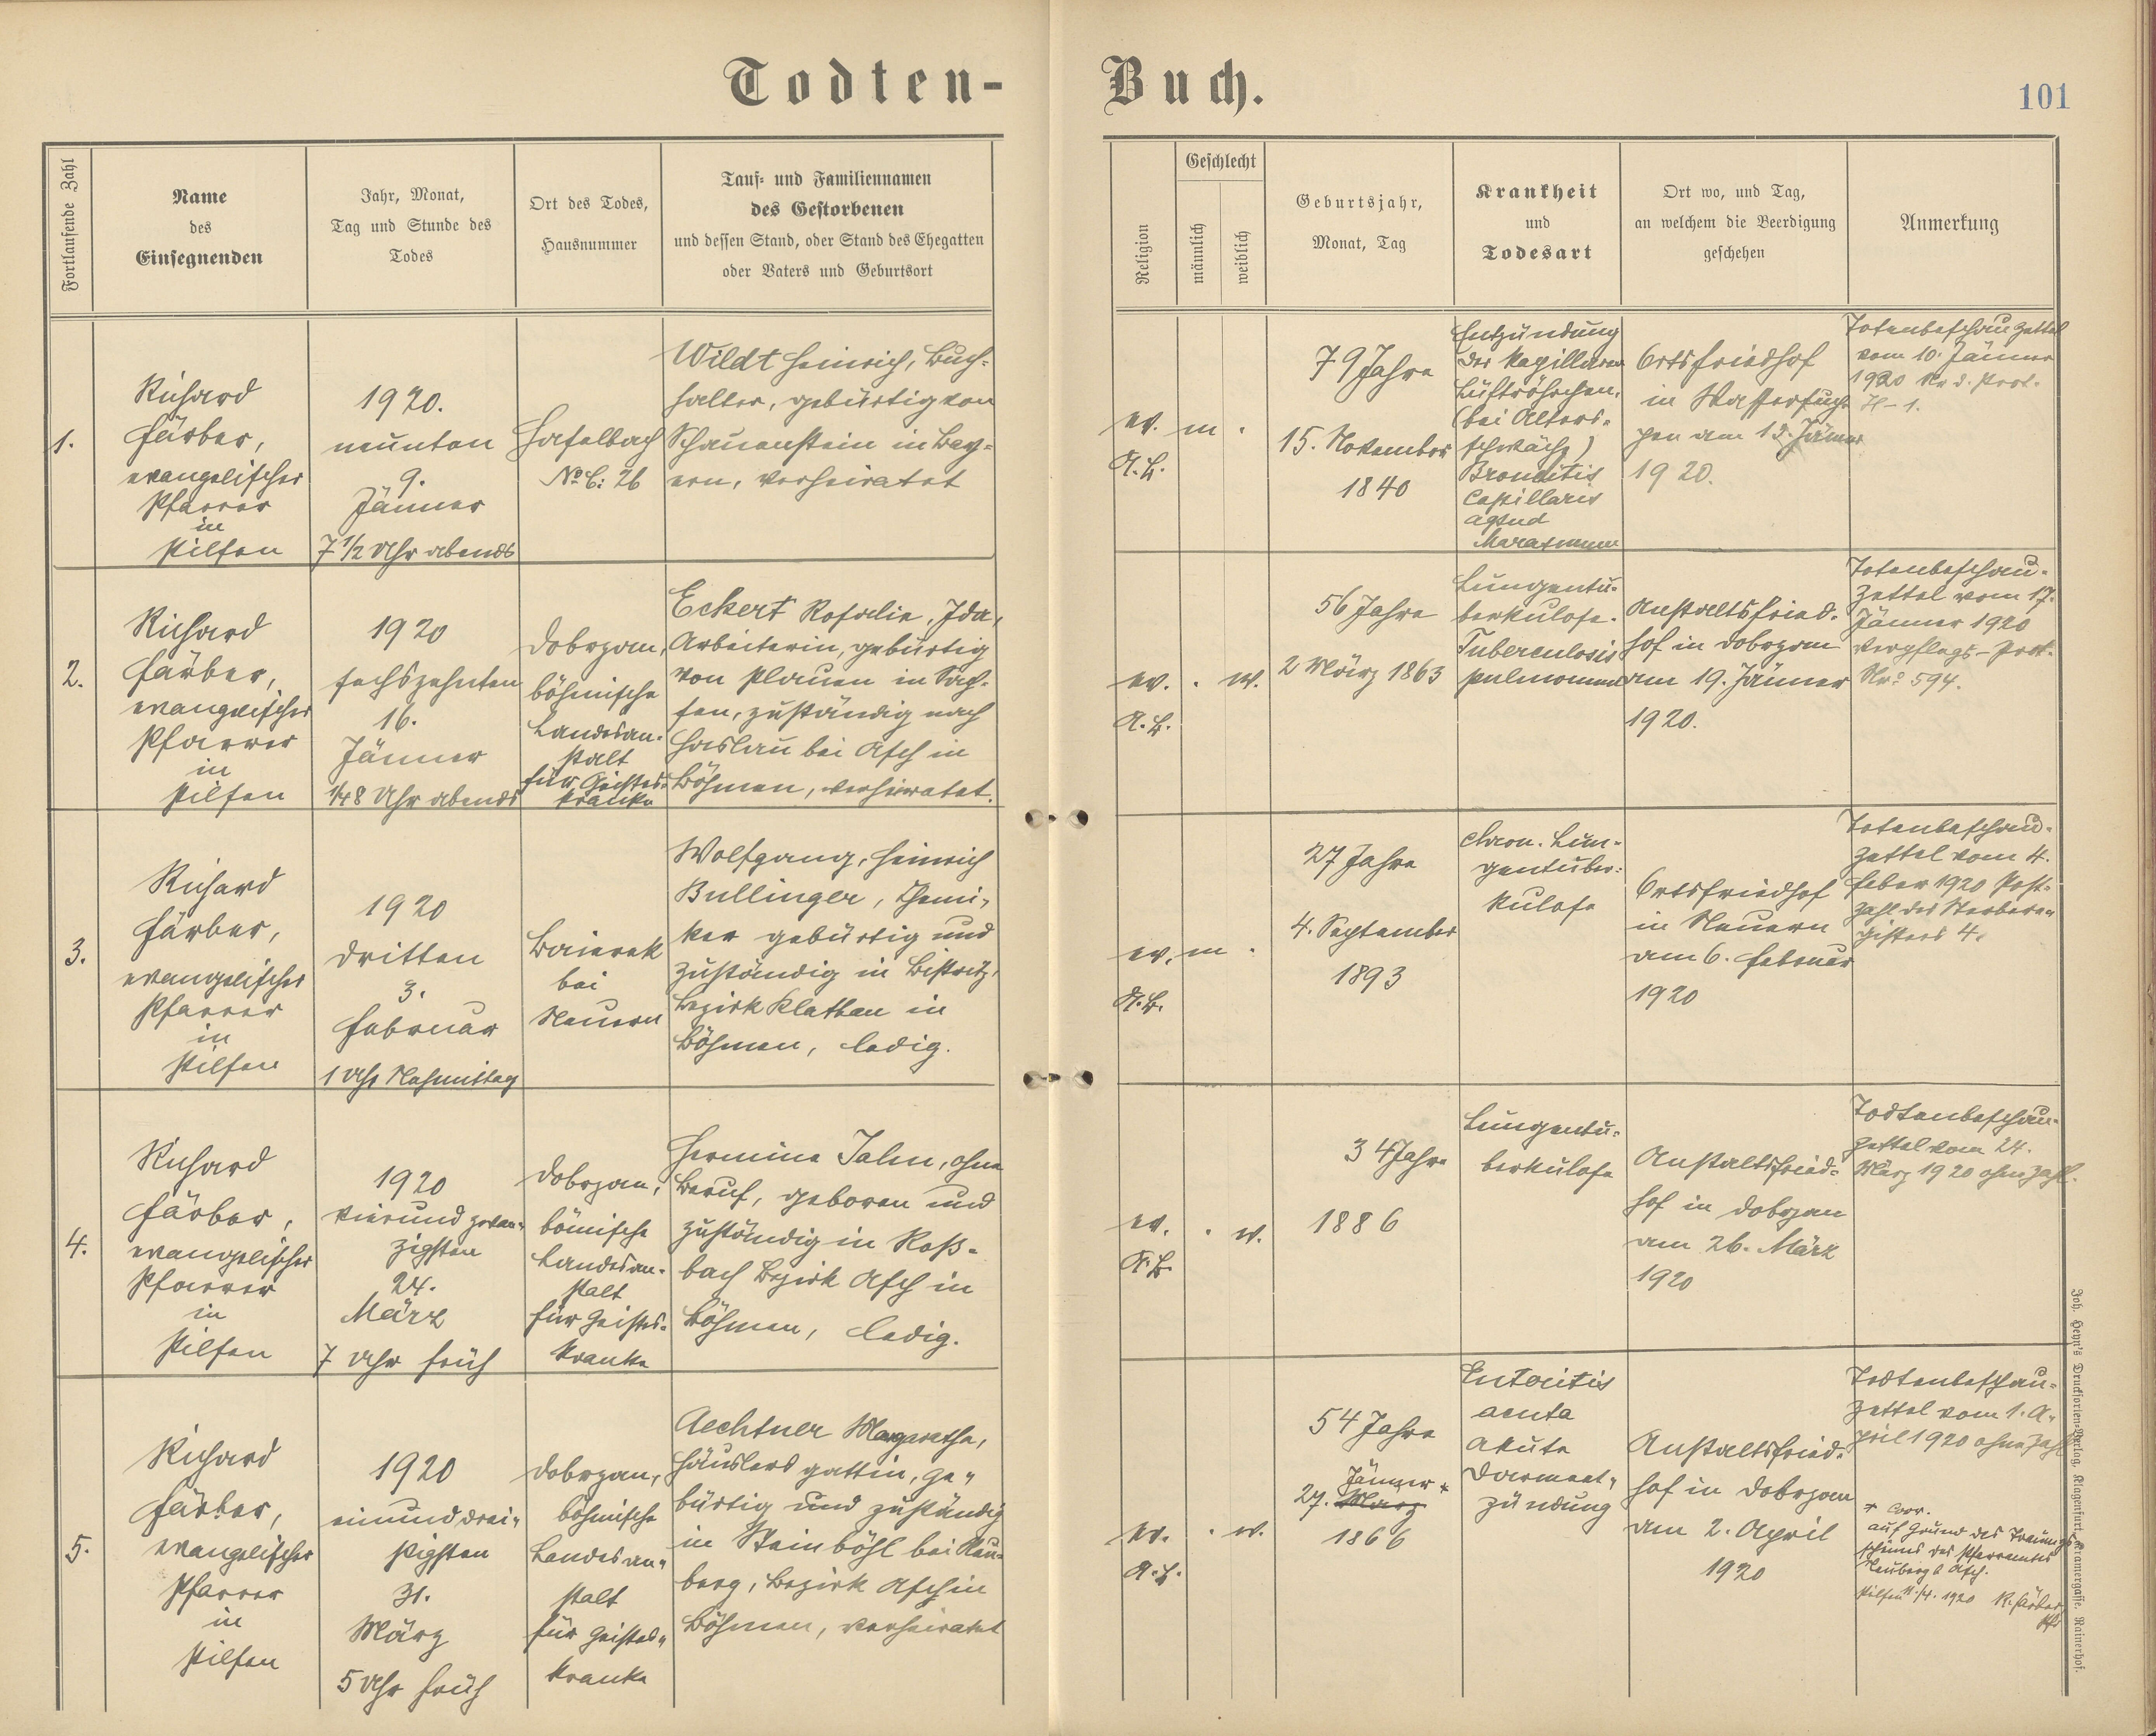 Todten-
Buch.
101
Fortlaufende Zahl
Name
des
Einsegnenden
Jahr, Monat,
Tag und Stunde des
Todes
Ort des Todes,
Hausnummer
Tauf- und Familiennamen
des Gestorbenen
und dessen Stand, oder Stand des Ehegatten
oder Vaters und Geburtsort
Religion
Geschlecht
männlich
weiblich
Geburtsjahr,
Monat, Tag
Krankheit
und
Todesart
Ort wo, und Tag,
an welchem die Beerdigung
geschehen
Anmerkung
1.
Richard
Färber,
evangelischer
Pfarrer
in
Pilsen
1920.
neunten
9.
Jänner
7 1/2 Uhr abends
Haselbach
No C: 26
Wildt Heinrich, Buch-
halter, gebürtig von
Schauenstein in Bay-
ern, verheiratet
ev.
A.B.
m
79 Jahre
15. November
1840
Entzündung
der Kapillaren
Luftröhrchen.
(bei Alters-
schwäche)
Capillaris
Ortsfriedhof
in Wassersup-
pen am 12. Jänner
1920.
Totenbeschauzettel
vom 10. Jänner
1920 Nr d. Prot.
2.
Richard
Färber,
evangelischer
Pfarrer
in
Pilsen
1920
sechszehnten
16.
Jänner
1/4 8 Uhr abends
Dobrzan,
böhmische
Landesan-
stalt
für Geistes-
kranke
Eckert Rosalie, Ida,
Arbeiterin, gebürtig
von Plauen in Sach-
sen, zuständig nach
Haslau bei Asch in
Böhmen, verheiratet.
ev.
A.B.
w.
56 Jahre
2 März 1863
Lungentu-
berkulose.
Tuberculosis
pulmonum
Anstaltsfried-
hof in Dobrzan
am 19. Jänner
1920.
Totenbeschau-
zettel vom 17.
Jänner 1920
Verpflegs-Prot.
Nro 594.
3.
Richard
Färber,
evangelischer
Pfarrer
in
Pilsen
1920
dritten
3.
Februar
1 Uhr Nachmittag
Baierek
bei
Neuern
Wolfgang, Heinrich
Bullinger, Chemi-
ker gebürtig und
zuständig in Bistritz,
Bezirk Klattau in
Böhmen, ledig.
ev.
A.B.
m
27 Jahre
4. September
1893
chron. Lun-
gentuber-
kulose
Ortsfriedhof
in Neuern
am 6. Februar
1920
Totenbeschau-
zettel vom 4.
Feber 1920 Post-
zahl des Sterbere-
gisters 4.
4.
Richard
Färber,
evangelischer
Pfarrer
in
Pilsen
1920
vierundzwan-
zigsten
24.
März
7 Uhr früh
Dobrzan,
bömische
Landesan-
stalt
für Geistes-
kranke
Hermine Jahn, ohne
Beruf, geboren und
zuständig in Roß-
bach Bezirk Asch in
Böhmen, ledig.
ev.
A.B.
w.
34 Jahre
1886
Lungentu-
berkulose
Anstaltsfried-
hof in Dobrzan
am 26. März
1920
Todtenbeschau-
zettel vom 24.
März 1920 ohne Zahl.
5.
Richard
Färber,
evangelischer
Pfarrer
in
Pilsen
1920
einunddrei-
ßigsten
31.
März
5 Uhr früh
Dobrzan,
böhmische
Landesan-
stalt
für Geistes-
kranke
Aechtner Margarethe,
Häuslers gattin, ge-
bürtig und zuständig
in Steinböhl bei Neu-
berg, Bezirk Asch in
Böhmen, verheiratet
ev.
A.B.
w.
54 Jahre
Jänner +
27. März
1866
Enteritis
acuta
akute
Darment-
zündung
Anstaltsfried-
hof in Dobrzan
am 2. April
1920
Todtenbeschau-
zettel vom 1. A-
pril 1920 ohne Zahl
+ Corr.
auf Grund des Trauungs-
scheines des Pfarramtes
Neuberg b Asch.
Pilsen 11./4. 1920 R. Färber
Joh. Heyn's Drucksorten-Verlag, Klagenfurt, Kramergasse, Rainerhof.